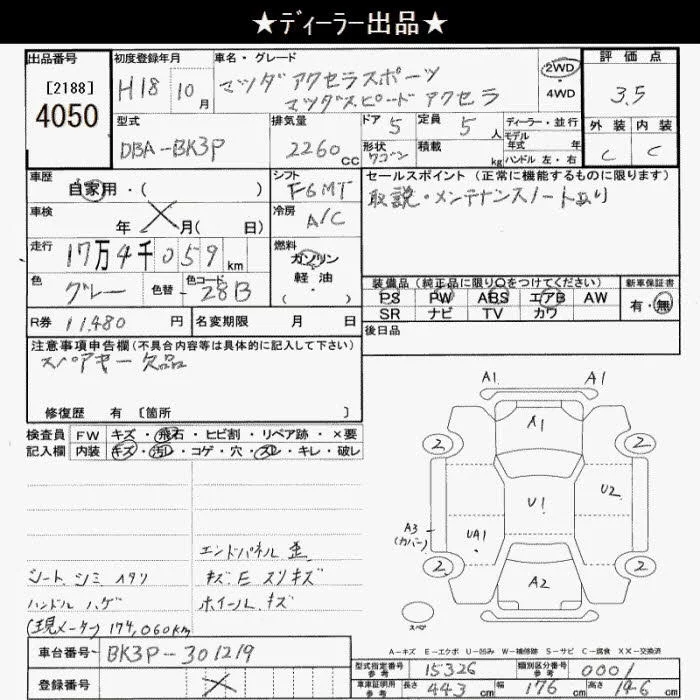 ★ディーラー出品★
出品番号
[2188]
4050
初度登録年月
H18 10月
車名・グレード
マツダアクセラスポーツ
マツダスピードアクセラ
2WD
・
4WD
評価点
3.5
外装 内装
C C
型式
DBA-BK3P
排気量
2260cc
ドア 5
定員 5人
形状 ワゴン
積載 kg
ディーラー・並行
モデル
年式 年
ハンドル 左・右
車歴
自家用・( )
シフト
F6MT
車検
年 月( 日)
冷房
A/C
走行
17万4千059km
燃料
ガソリン
軽油
・( )
色
グレー
色替
色コード
28B
R券 11,480円
名変期限 月 日
セールスポイント(正常に機能するものに限ります)
取説・メンテナンスノートあり
装備品(純正品に限り○をつけてください)
PS PW ABS エアB AW
SR ナビ TV カワ
新車保証書
有・無
後日品
注意事項申告欄(不具合内容等は具体的に記入して下さい)
スペアキー欠品
修復歴 有 〔箇所 〕
検査員
記入欄
FW キズ・飛石・ヒビ割・リペア跡・×要
内装 キズ・汚レ・コゲ・穴・スレ・キレ・破レ
シート シミ ヘタリ
ハンドル ハゲ
(現メーター) 174,060km
エンドパネル 歪
キズE スリキズ
ホイール キズ
A1 A1
A1
2 2
U1
U2
A3
(カバー)
UA1
2 2
A2
スペア
A-キズ E-エクボ U-凹み W-補修跡 S-サビ C-腐食 XX-交換済
車台番号 BK3P-301219
登録番号
型式指定番号
参考
15326
類別区分番号
参考
0001
車庫証明用
参考
長さ 443cm
幅 176cm
高さ 146cm